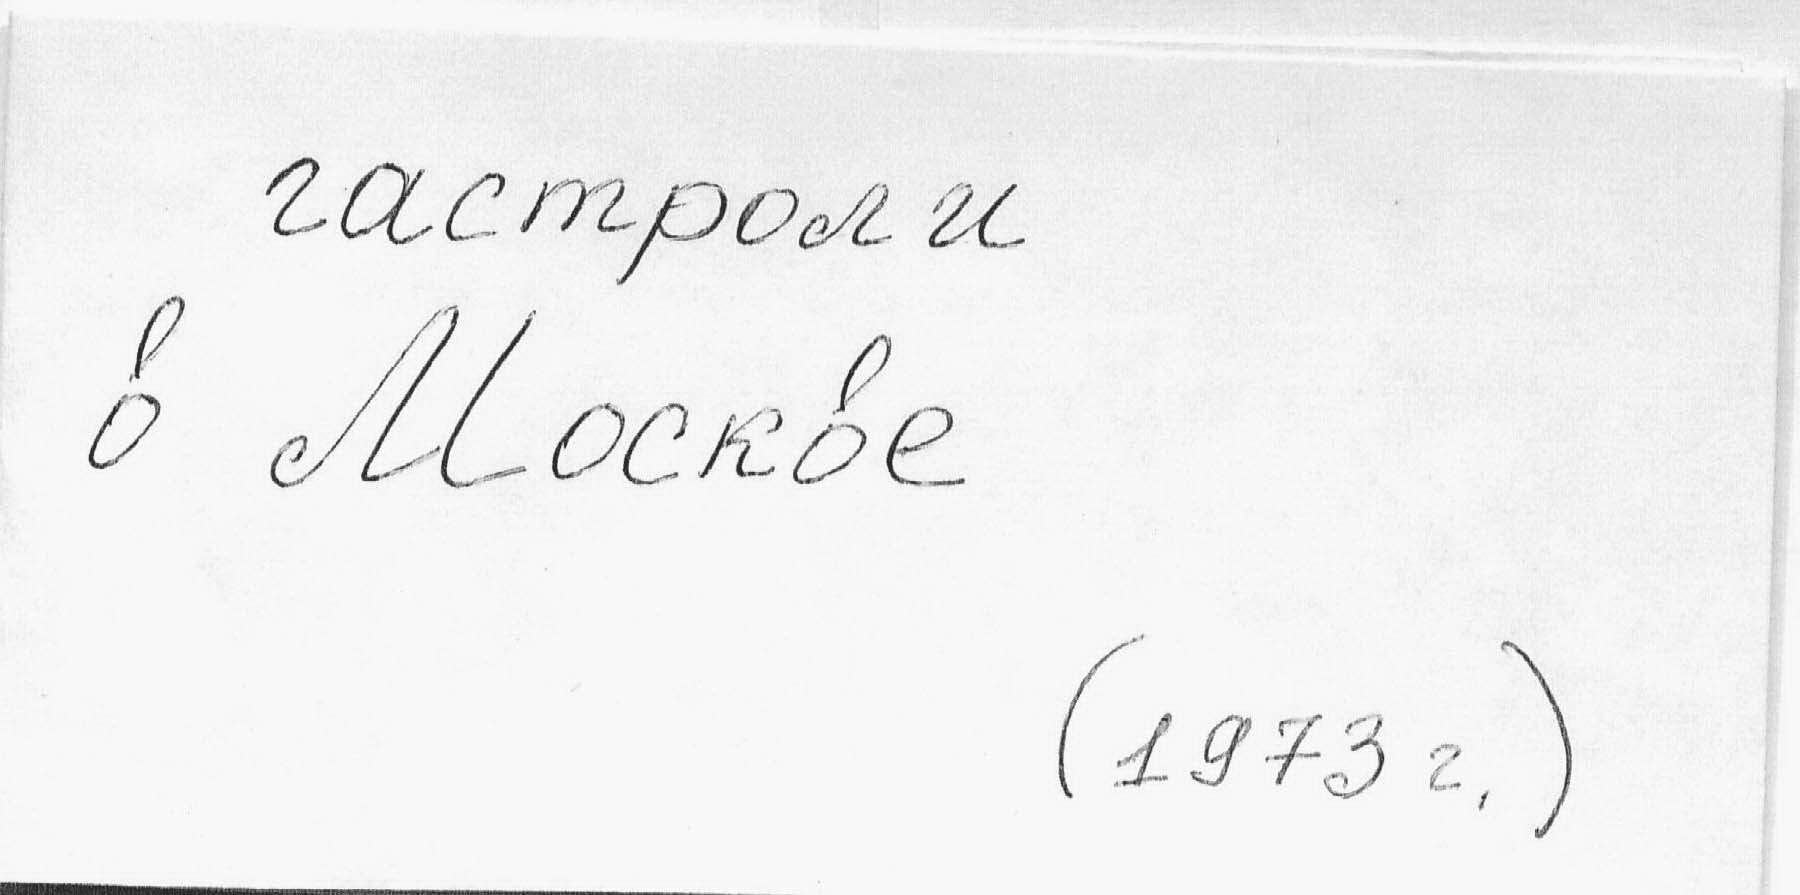 гастроли
в Москве
(1973 г.)